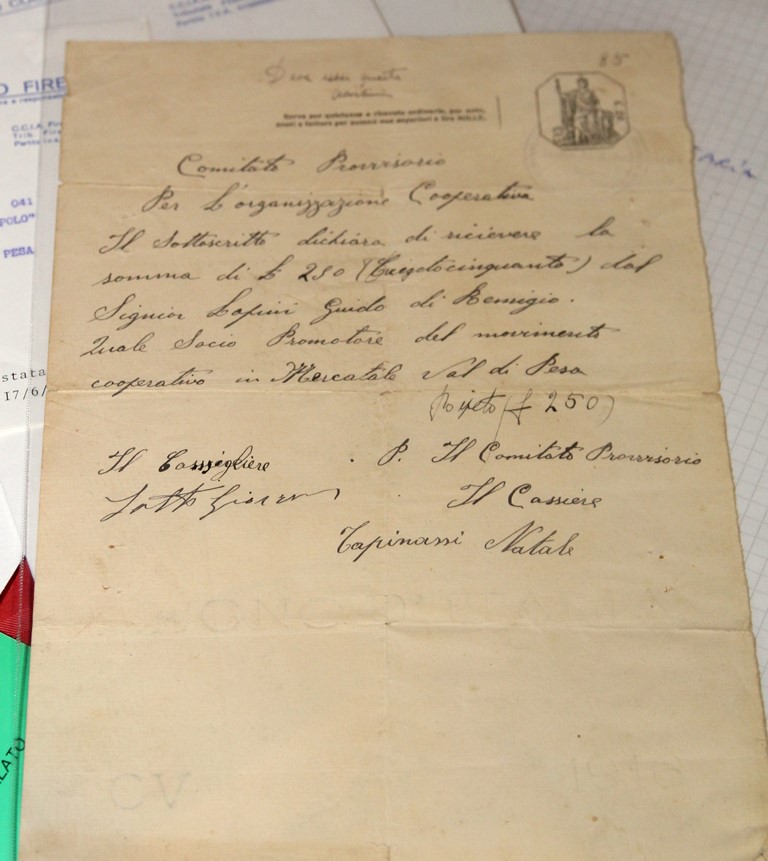 O FIRE
C.C.I.A. Fire
041
POLO"
PESA
stata
17/6/
LATO
85
Deve esser questo
Serve per quietanze e ricevute ordinarie, per note,
conti e fatture per somme non superiori a lire MILLE.
Comitato Provvisorio
Per L'organizzazione Cooperativa
Il Sottoscritto dichiara di ricievere la
somma di £ 250 (Duegotocinquanto) dal
Signior Lapini Guido di Remigio.
Quale Socio Promotore del movimento
cooperativo in Mercatale Val di Pesa
Ripeto (£ 250)
Il Consigliere P. Il Comitato Provvisorio
Il Cassiere
Tapinassi Natale